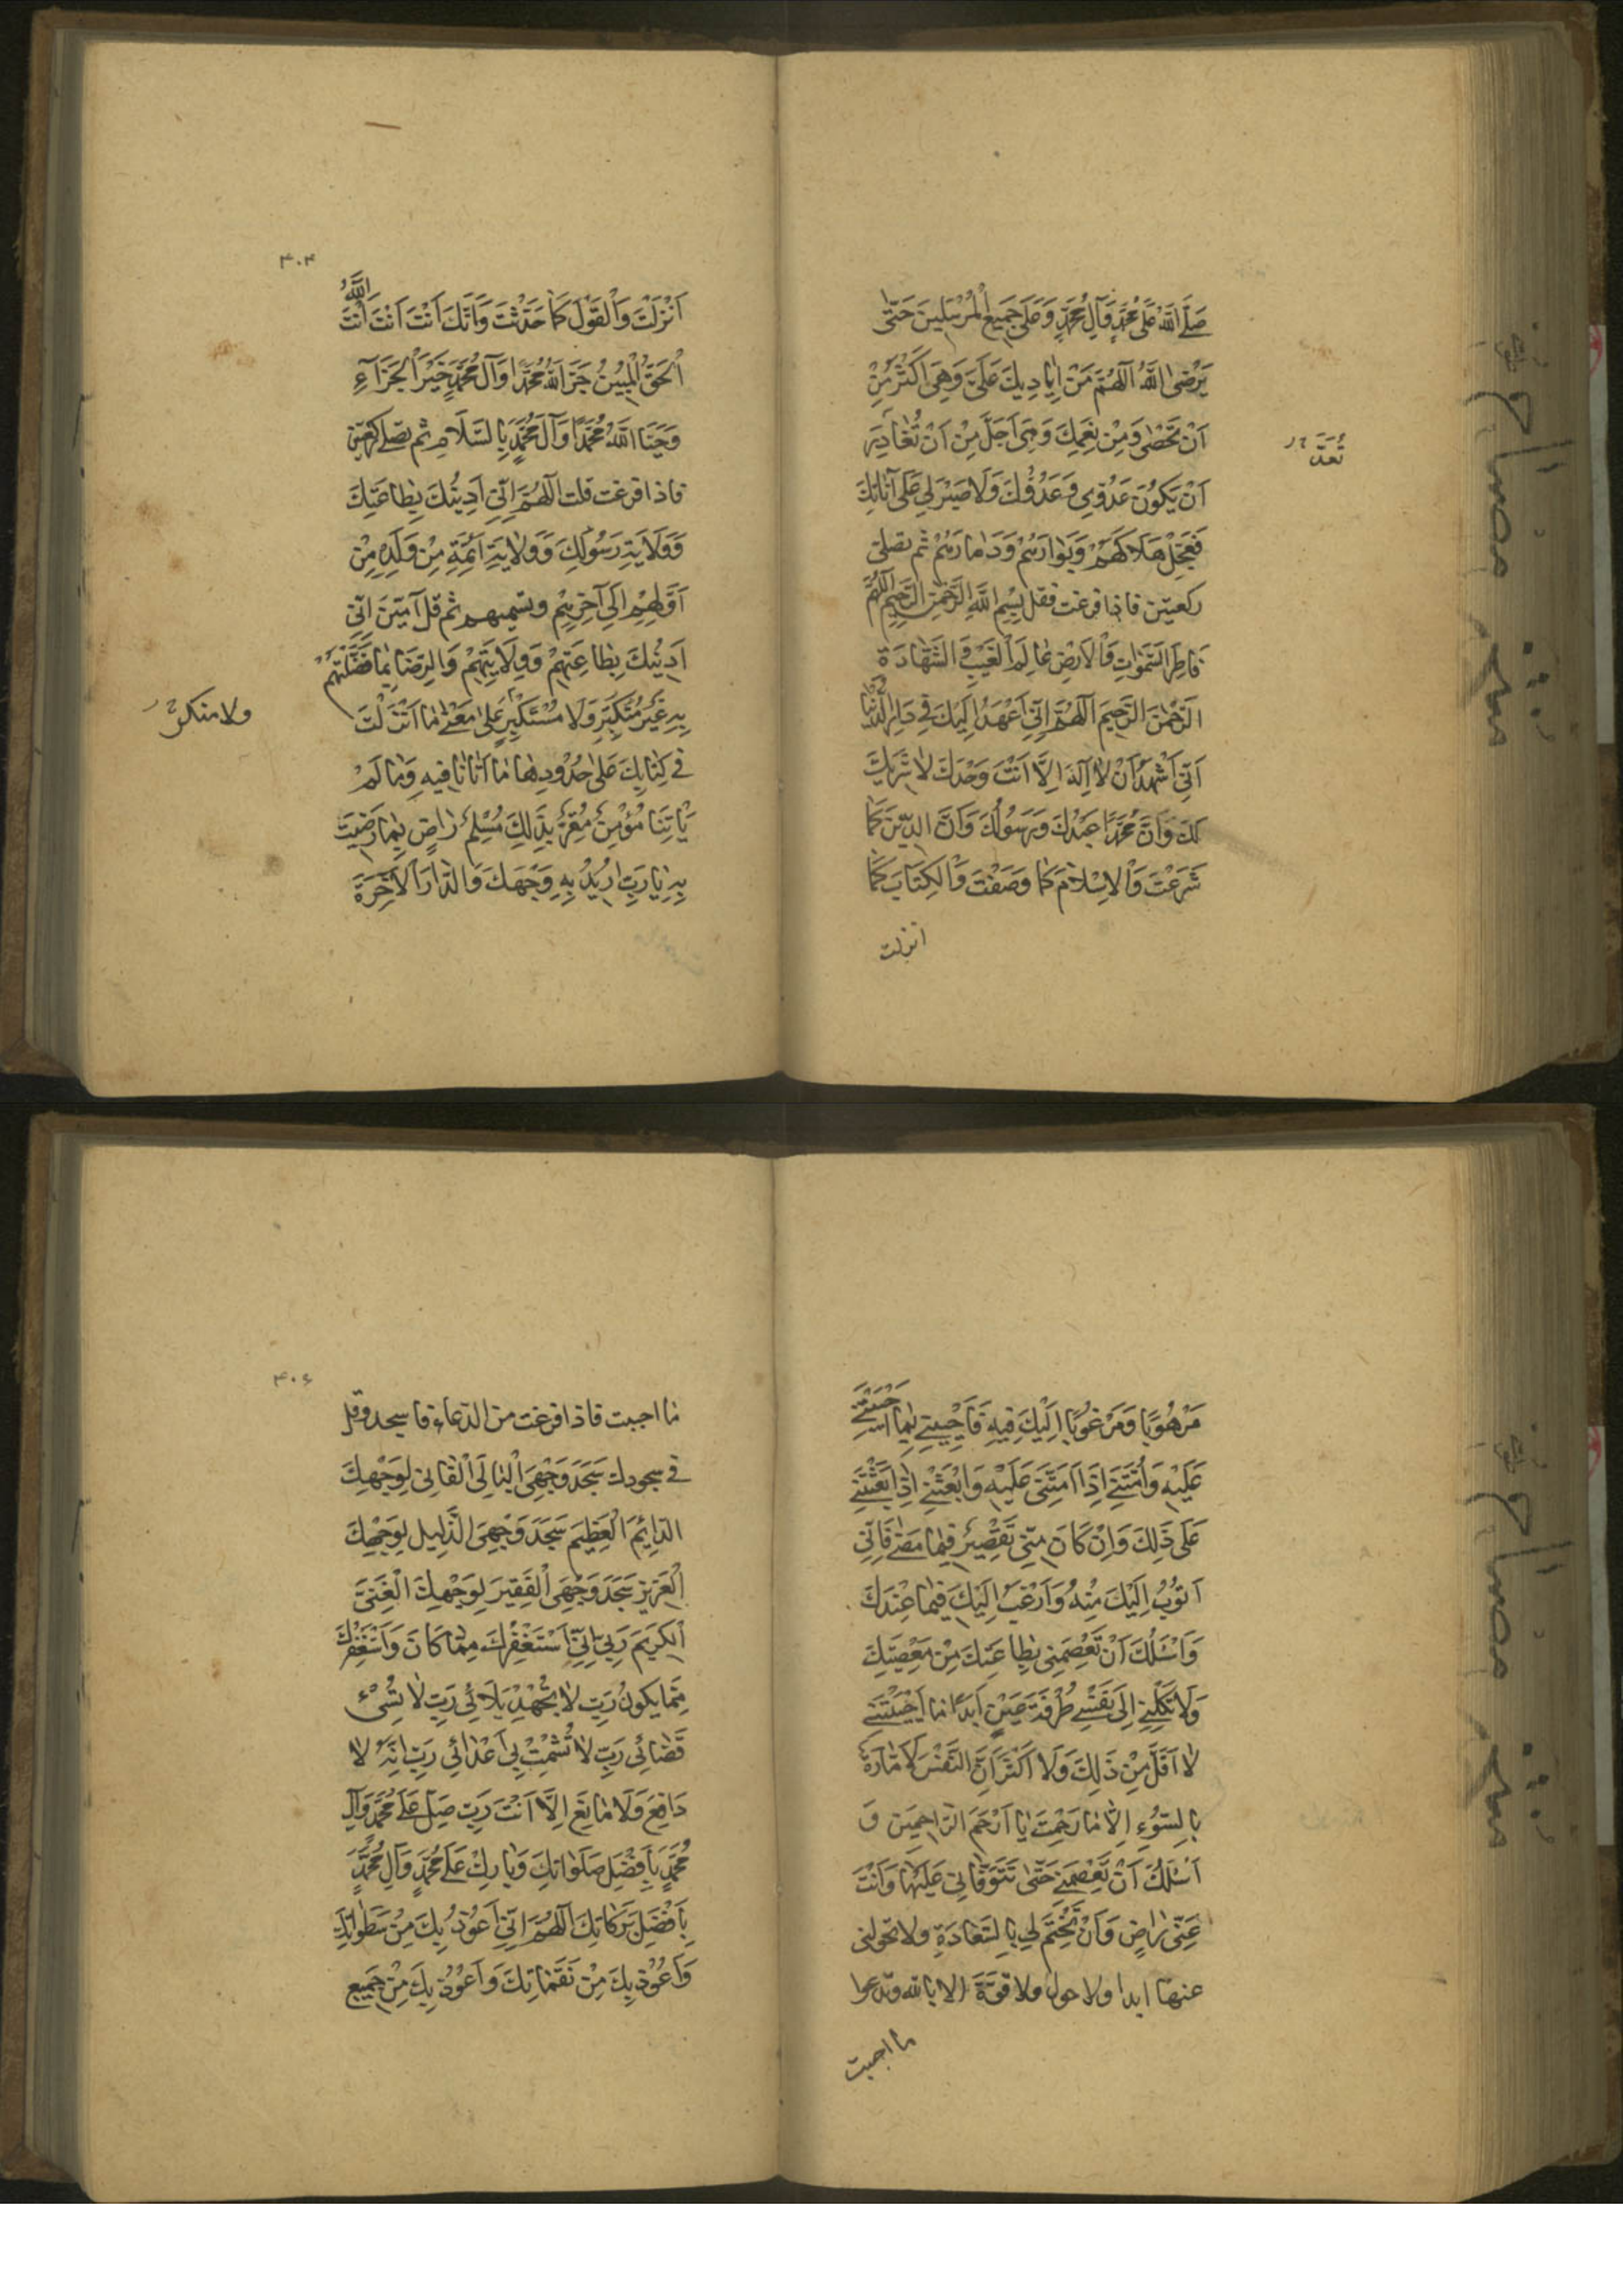 صَلَّى اللهُ عَلَى مُحَمَّدٍ وَآلِ مُحَمَّدٍ وَعَلَى جَمِيعِ الْمُرْسَلِينَ حَتَّى
يَرْضَى اللهُ اَللّهُمَّ مَنْ اَيَادِيكَ عَلَيَّ وَهِيَ اَكْثَرُ مِنْ
اَنْ تُحْصٰى وَمِنْ نِعَمِكَ وَهِيَ اَجَلُّ مِنْ اَنْ تُغَادَرَ
تُعَدَّ
اَنْ يَكُونَ عَدُوِّي وَعَدُوُّكَ وَلَا صَبْرَ لِي عَلَى اَنَاتِكَ
فَعَجِّلْ هَلَاكَهُمْ وَبَوَارَهُمْ وَدَمَارَهُمْ ثم تصلى
ركعتين فاذا فرغت فقل بِسْمِ اللهِ الرَّحْمٰنِ الرَّحِيمِ اَللّهُمَّ
فَاطِرَ السَّمٰوَاتِ وَالْاَرْضِ عَالِمَ الْغَيْبِ وَالشَّهَادَةِ
الرَّحْمٰنَ الرَّحِيمَ اَللّهُمَّ اِنِّي اَعْهَدُ اِلَيْكَ فِي دَارِ الدُّنْيَا
اَنِّي اَشْهَدُ اَنْ لَا اِلٰهَ اِلَّا اَنْتَ وَحْدَكَ لَا شَرِيكَ
لَكَ وَاَنَّ مُحَمَّدًا عَبْدُكَ وَرَسُولُكَ وَاَنَّ الدِّينَ كَمَا
شَرَعْتَ وَالْاِسْلَامَ كَمَا وَصَفْتَ وَالْكِتَابَ كَمَا
انزلت
۴۰۴
اَنْزَلْتَ وَالْقَوْلَ كَمَا حَدَّثْتَ وَاَنَّكَ اَنْتَ اَنْتَ اَنْتَ اللهُ
الْحَقُّ الْمُبِينُ جَزَا اللهُ مُحَمَّدًا وَآلَ مُحَمَّدٍ خَيْرَ الْجَزَاءِ
وَحَيَّا اللهُ مُحَمَّدًا وَآلَ مُحَمَّدٍ بِالسَّلَامِ ثم تصلى ركعتين
فاذا فرغت قلت اَللّهُمَّ اِنِّي اَدِينُكَ بِطَاعَتِكَ
وَوَلَايَةِ رَسُولِكَ وَوِلَايَةِ اَئِمَّةِ مِنْ وَلَدِهِ مِنْ
اَوَّلِهِمْ اِلَى آخِرِهِمْ وتسميهم ثم قل آمِينَ اِنِّي
اَدِينُكَ بِطَاعَتِهِمْ وَوِلَايَتِهِمْ وَالرِّضَا بِمَا فَضَّلْتَهُمْ
بِهِ غَيْرَ مُتَكَبِّرٍ وَلَا مُسْتَكْبِرٍ عَلَى مَعْنٰى مَا اَنْزَلْتَ
ولا منكر
فِي كِتَابِكَ عَلَى حُدُودِهَا مَا اَتَانَا فِيهِ وَمَا لَمْ
يَاْتِنَا مُؤْمِنٌ مُقِرٌّ بِذَلِكَ مُسْلِمٌ رَاضٍ بِمَا رَضِيتَ
بِهِ يَا رَبِّ اُرِيدُ بِهِ وَجْهَكَ وَالدَّارَ الْاٰخِرَةَ
مَرْهُوبًا وَمَرْغُوبًا اِلَيْكَ فِيهِ فَاَحْيِنِي مَا اَحْيَيْتَنِي
عَلَيْهِ وَاَمِتْنِي اِذَا اَمَتَّنِي عَلَيْهِ وَابْعَثْنِي اِذَا بَعَثْتَنِي
عَلَى ذَلِكَ وَاِنْ كَانَ مِنِّي تَقْصِيرٌ فِيمَا مَضٰى فَاِنِّي
اَتُوبُ اِلَيْكَ مِنْهُ وَاَرْغَبُ اِلَيْكَ فِيمَا عِنْدَكَ
وَاَسْئَلُكَ اَنْ تَعْصِمَنِي بِطَاعَتِكَ مِنْ مَعْصِيَتِكَ
وَلَا تَكِلْنِي اِلَى نَفْسِي طَرْفَةَ عَيْنٍ اَبَدًا مَا اَحْيَيْتَنِي
لَا اَقَلَّ مِنْ ذَلِكَ وَلَا اَكْثَرَ اِنَّ النَّفْسَ لَاَمَّارَةٌ
بِالسُّوءِ اِلَّا مَا رَحِمْتَ يَا اَرْحَمَ الرَّاحِمِينَ وَ
اَسْئَلُكَ اَنْ تَعْصِمَنِي حَتَّى تَتَوَفَّانِي عَلَيْهَا وَاَنْتَ
عَنِّي رَاضٍ وَاَنْ تَخْتِمَ لِي بِالسَّعَادَةِ ولا تحولنى
عنها ابدا ولا حول ولا قوة الا بالله وتدعوا
ما احببت
۴۰۶
ما احببت فاذا فرغت من الدعاء فاسجد وقل
فى سجودك سَجَدَ وَجْهِيَ الْبَالِي الْفَانِي لِوَجْهِكَ
الدَّائِمِ الْعَظِيمِ سَجَدَ وَجْهِيَ الذَّلِيلُ لِوَجْهِكَ
الْعَزِيزِ سَجَدَ وَجْهِيَ الْفَقِيرُ لِوَجْهِكَ الْغَنِيِّ
الْكَرِيمِ رَبِّ اِنِّي اَسْتَغْفِرُكَ مِمَّا كَانَ وَاَسْتَغْفِرُكَ
مِمَّا يَكُونُ رَبِّ لَا تُجْهِدْ بَلَائِي رَبِّ لَا تُسِئْ
قَضَائِي رَبِّ لَا تُشْمِتْ بِي اَعْدَائِي رَبِّ اِنَّهُ لَا
دَافِعَ وَلَا مَانِعَ اِلَّا اَنْتَ رَبِّ صَلِّ عَلَى مُحَمَّدٍ وَآلِ
مُحَمَّدٍ بِاَفْضَلِ صَلَوَاتِكَ وَبَارِكْ عَلَى مُحَمَّدٍ وَآلِ مُحَمَّدٍ
بِاَفْضَلِ بَرَكَاتِكَ اَللّهُمَّ اِنِّي اَعُوذُ بِكَ مِنْ سَطَوَاتِكَ
وَاَعُوذُ بِكَ مِنْ نَقِمَاتِكَ وَاَعُوذُ بِكَ مِنْ جَمِيعِ